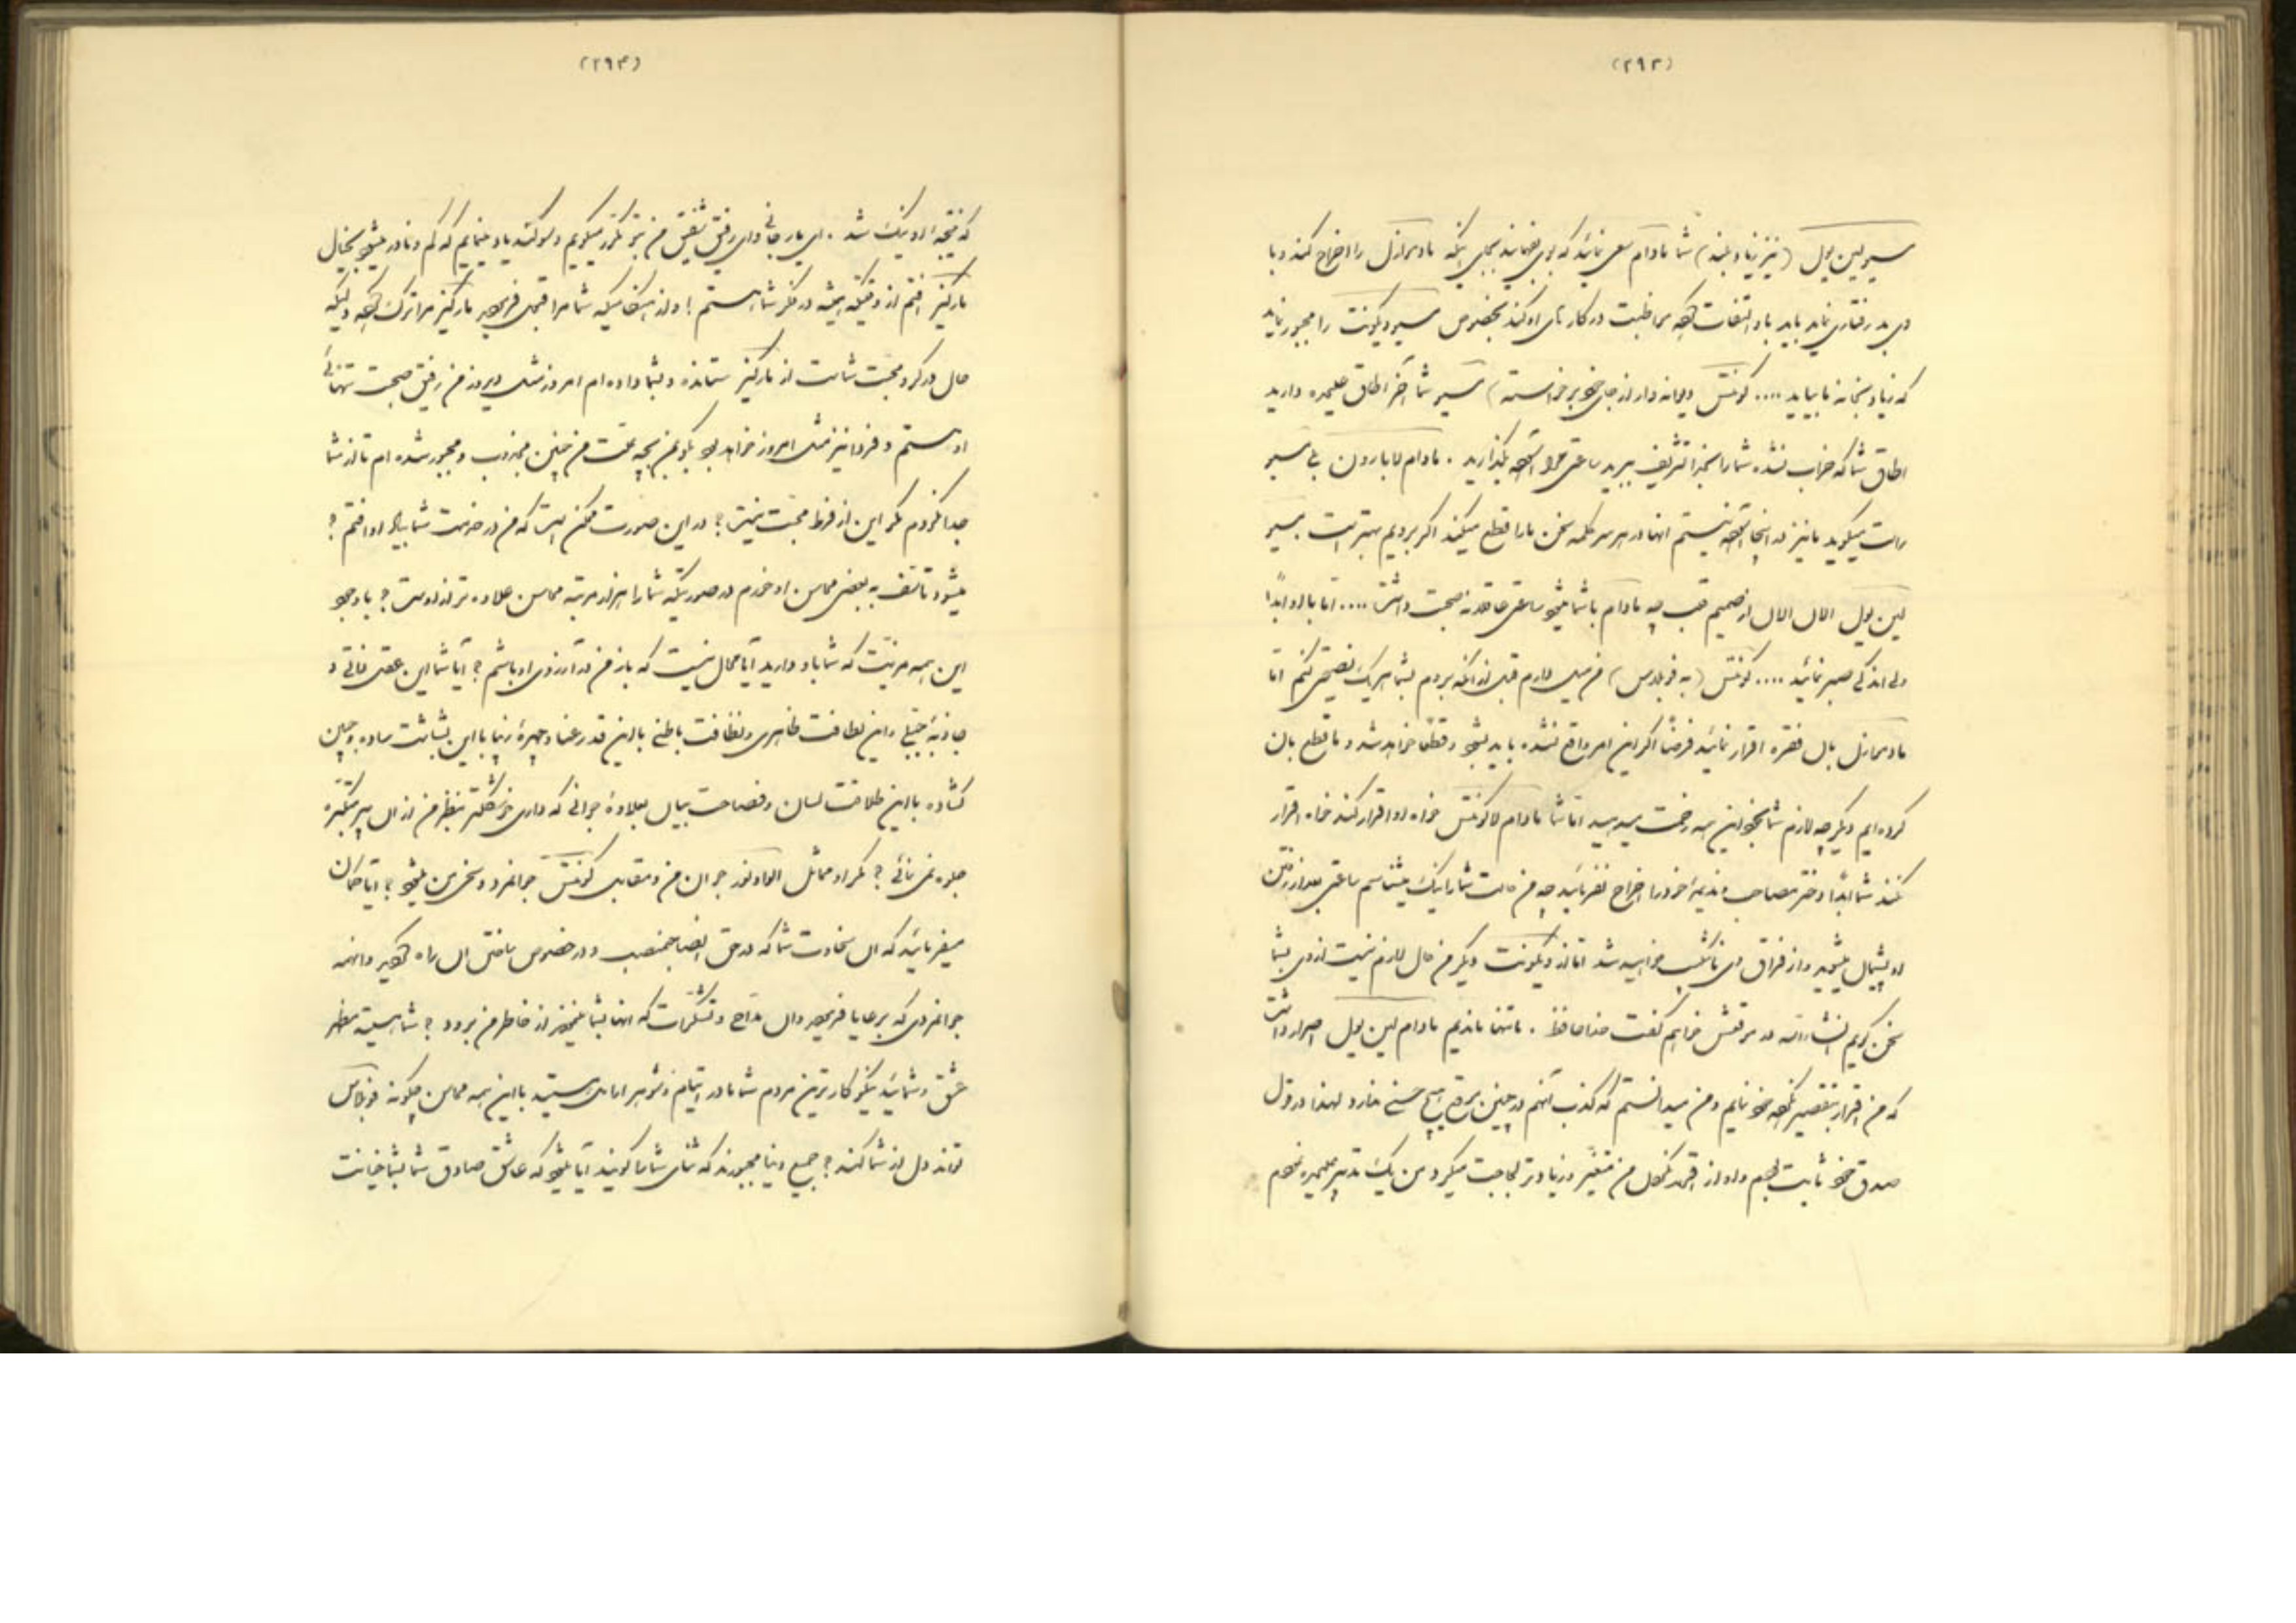 (۲۹۳)
مسیو لین پول (نیز زیاد بلند) شما مادام سعی نمائید که باو بفهمانید بجای اینکه مادموازل را اخراج کند و با
وی بد رفتاری نماید باید باو التفات کرده مواظبت در کارهای او کند بخصوص مسیو ویکونت را مجبور نماید
که زیاد بخانه ما بیاید .... کونتس دیوانه وار از جای خود برخواسته) مسیو شما آخر اطاق علیحده دارید
اطاق شما که خراب نشده شما را بخدا تشریف ببرید ساعتی مرا آسوده بگذارید . مادام لابارون بلی مسیو
راست میگوید ما نیز در اینجا آسوده نیستیم اینها در هر سر کلمه سخن ما را قطع میکنند اگر برویم بهتر است مسیو
لین پول الان الان از صمیم قلب چه مادام با شما میشود ساعتی عاقلانه صحبت داشت .... اما با او ابداً
ولی اندکی صبر نمائید .... کونتس (به فوبلاس) من میل دارم قبل از آنکه بروم بشما هر یک نصیحتی کنم اما
مادموازل بآن فقره اقرار نمائید فرضاً اگر این امر واقع نشده باید بشود و قطعاً خواهد شد و ما قطع بآن
کرده ایم دیگر چه لازم شما بخود این همه زحمت میدهید اما شما مادام لاکونتس خواه او اقرار کند خواه اقرار
نکند شما ابداً دختر مصاحب و ندیمه خود را اخراج نفرمائید چه من حالت شما را نیک میشناسم ساعتی بعد از رفتن
او پشیمان میشوید و از فراق وی بی‌تاب خواهید شد اما از ویکونت دیگر من حال لازم نیست از وی بشما
سخن گویم انشاءالله در موقعش خواهم گفت خداحافظ . ما تنها ماندیم مادام لین پول اصرار داشت
که من اقرار بتقصیر نکرده خود نمایم و من میدانستم که کذب آنهم در چنین موقع هیچ حسنی ندارد لهذا در قول
صدق خود ثابت بودم و او از اقرار نکردن من متغیر و زیادتر لجاجت میکرد من یک تدبیر علیحده نمودم
(۲۹۴)
که نتیجه او نیک شد . ای یار جانی و ای رفیق شفیق من بتو مکرر میگویم و سوگند یاد مینمایم که کم و نادر میشود بخیال
مارکیز افتم از وقتیکه همیشه در فکر شما هستم ! و از هنگامیکه شما مرا قبول فرمودید مارکیز مرا ترک کرده و لیکه
حال در گرو محبت شماست از مارکیز ستانده و بشما داده ام امروز مثل دیروز من رفیق صحبت تنهائی
او هستم و فردا نیز مثل امروز خواهد بود بگوئید من بچه علت من چنین مجذوب و مجبور شده ام تا از شما
جدا نگردم مگر این از فرط محبت نیست ؟ در این صورت ممکن است که من در خدمت شما بیاد او افتم ؟
میشود تاسف به بعضی محاسن او خورم در صورتیکه شما را هزار مرتبه محاسن علاوه تر از اوست ؟ با وجود
این همه مزیت که شما باو دارید آیا محال نیست که باز من در آرزوی او باشم ؟ آیا شما این عقل ذاتی و
جاذبه جبلی و این لطافت ظاهری و نظافت باطنی با این قد رعنا و چهره زیبا با این بشاشت ساده و جبین
گشاده با این طلاقت لسان و فصاحت بیان بعلاوه جوانی که داری خوشگلتر بنظر من از آن پیر متکبره
جلوه نمی نمائی ؟ مگر او مماثل الوادور جوان من و مقابل کونتس جوانمرد و سخی من میشود ؟ آیا گمان
میفرمائید که آن سخاوت شما که در حق ایضا جمنصب و در خصوص ساختن آن راه کردید و آنهمه
جوانمردی که برعایا فرمودید و آن مداح و تشکرات که آنها بشما نمودند از خاطر من برود ؟ شما هستید مظهر
عشق و شمائید نیکوکارترین مردم شما مادر ایتام و شوهر ارامل هستید با این همه محاسن چگونه فوبلاس
تواند دل از شما کند ؟ جمیع دنیا مجبورند که ثنای شما را گویند آیا میشود که عاشق صادق شما بشما خیانت